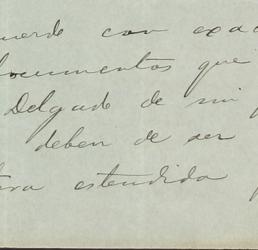 uerde con exac
documentos que
Delgado de mi
deben de ser
tura estendida